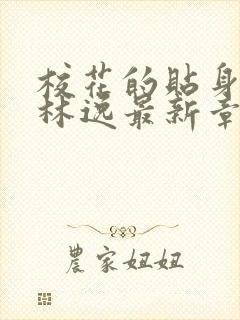 校花的貼身
林逸最新章
農家妞妞